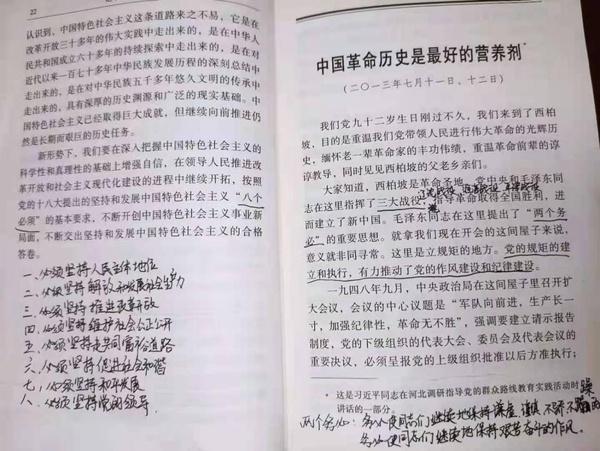 22
认识到，中国特色社会主义这条道路来之不易，它是在
改革开放三十多年的伟大实践中走出来的，是在中华人
民共和国成立六十多年的持续探索中走出来的，是在对
近代以来一百七十多年中华民族发展历程的深刻总结中
走出来的，是在对中华民族五千多年悠久文明的传承中
走出来的，具有深厚的历史渊源和广泛的现实基础。中
国特色社会主义已经取得巨大成就，但继续向前推进仍
然是长期而艰巨的历史任务。
新形势下，我们要在深入把握中国特色社会主义的
科学性和真理性的基础上增强自信，在领导人民推进改
革开放和社会主义现代化建设的进程中继续开拓，按照
党的十八大提出的坚持和发展中国特色社会主义“八个
必须”的基本要求，不断开创中国特色社会主义事业新
局面，不断交出坚持和发展中国特色社会主义的合格
答卷。
一、必须坚持人民主体地位
二、必须坚持解放和发展社会生产力
三、必须坚持推进改革开放
四、必须坚持维护社会公正公开
五、必须坚持走共同富裕道路
六、必须坚持促进社会和谐
七、必须坚持和平发展
八、必须坚持党的领导
中国革命历史是最好的营养剂*
（二〇一三年七月十一日、十二日）
我们党九十二岁生日刚过不久，我们来到了西柏
坡，目的是重温我们党带领人民进行伟大革命的光辉历
史，缅怀老一辈革命家的丰功伟绩，重温革命前辈的谆
谆教导，同时见见西柏坡的父老乡亲们。
大家知道，西柏坡是革命圣地。党中央和毛泽东同
辽沈战役 淮海战役 平津战役
志在这里指挥了三大战役，指导革命取得全国胜利，进
而建立了新中国。毛泽东同志在这里提出了“两个务
必”的重要思想。就拿我们现在开会的这间屋子来说，
意义就非同寻常。这里是立规矩的地方。党的规矩的建
立和执行，有力推动了党的作风建设和纪律建设。
一九四八年九月，中央政治局在这间屋里召开扩
大会议，会议的中心议题是“军队向前进，生产长一
寸，加强纪律性，革命无不胜”，强调要建立请示报告
制度，党的下级组织的代表大会、委员会及代表会议的
重要决议，必须呈报党的上级组织批准以后方准执行；
* 这是习近平同志在河北调研指导党的群众路线教育实践活动时
讲话的一部分。
两个务必：务必使同志们继续地保持谦虚、谨慎、不骄、不躁的
务必使同志们继续地保持艰苦奋斗的作风。